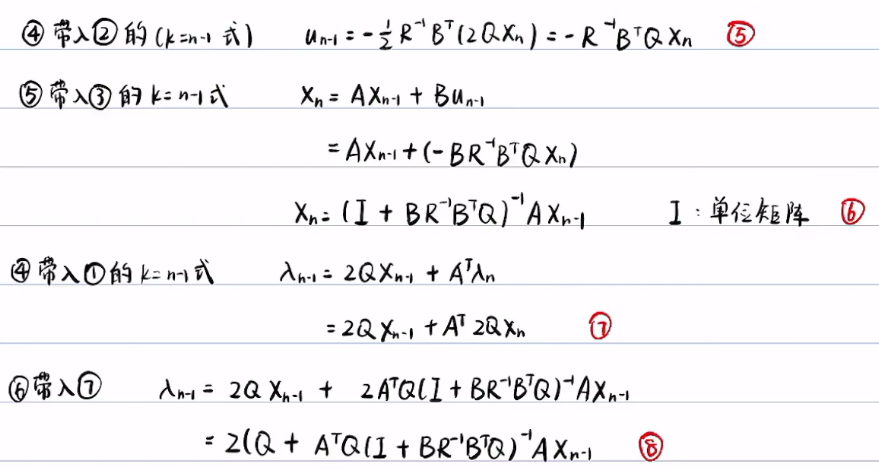 ④ 带入②的(k=n-1 式) uₙ₋₁ = -½ R⁻¹ Bᵀ(2QXₙ) = -R⁻¹BᵀQXₙ ⑤
⑤带入③的 k=n-1式 Xₙ = AXₙ₋₁ + Buₙ₋₁
= AXₙ₋₁ + (-BR⁻¹BᵀQXₙ)
Xₙ = (I + BR⁻¹BᵀQ)⁻¹AXₙ₋₁ I : 单位矩阵 ⑥
④带入①的 k=n-1式 λₙ₋₁ = 2QXₙ₋₁ + Aᵀλₙ
= 2QXₙ₋₁ + Aᵀ 2QXₙ ⑦
⑥带入⑦ λₙ₋₁ = 2QXₙ₋₁ + 2AᵀQ(I + BR⁻¹BᵀQ)⁻¹AXₙ₋₁
= 2(Q + AᵀQ(I + BR⁻¹BᵀQ)⁻¹AXₙ₋₁ ⑧